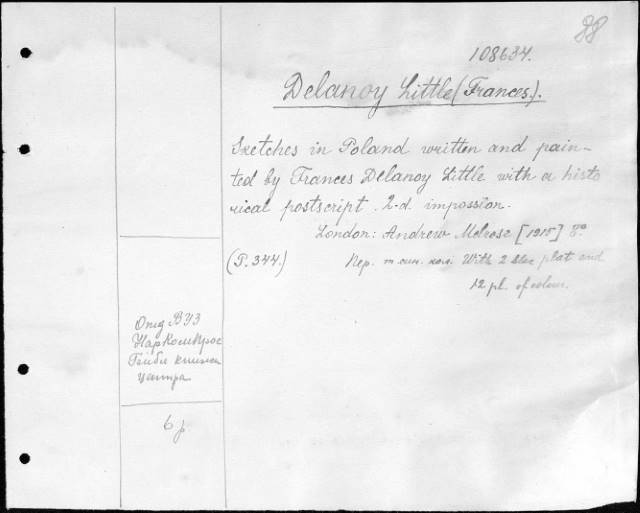 88
108634.
Delanoy Little (Frances.).
Sketches in Poland written and pain-
ted by Frances Delanoy Little with a histo
rical postscript. 2-d. impossion.
London: Andrew Melrose [1915] 8°
(P. 344.)
With 2 plat and
12 pl. of colour.
Отд ВУЗ
Наркомпрос
6 р.